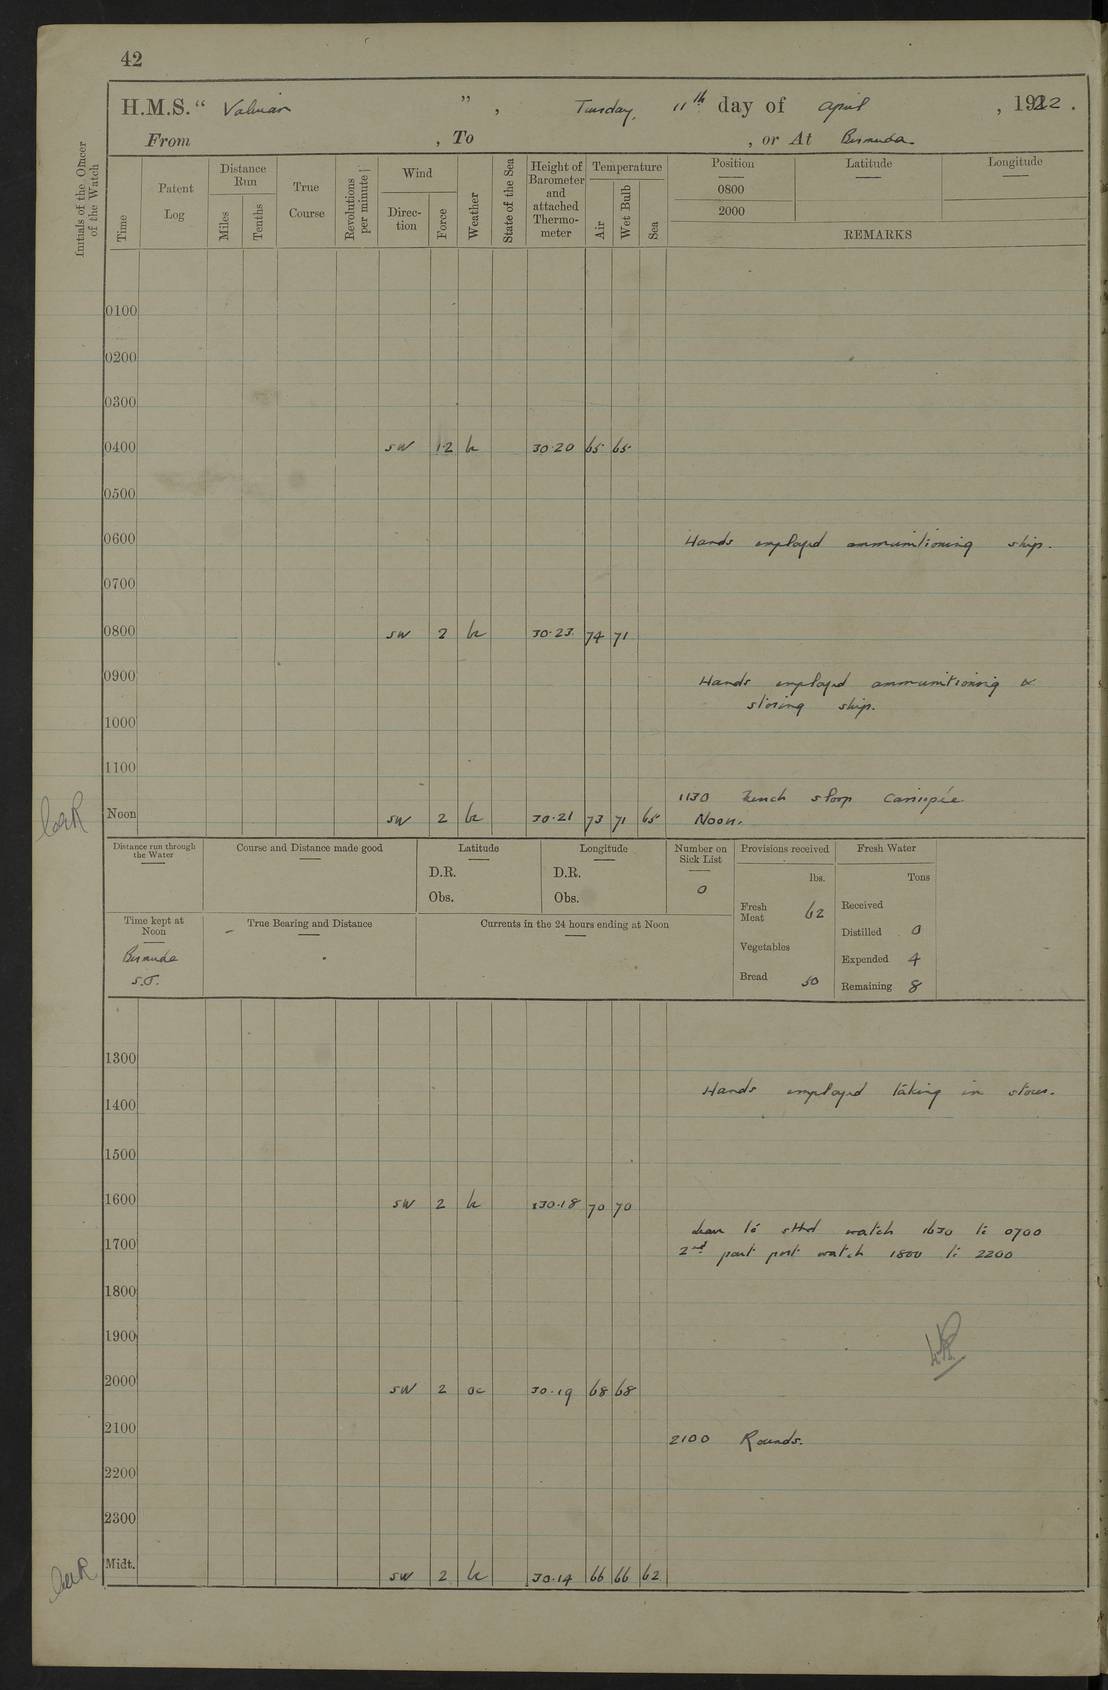 42
H.M.S. “ Valerian ” , Tuesday, 11th day of April , 1922 .
From , To , or At Bermuda.
Initials of the Officer of the Watch
Time
Patent Log
Distance Run
Miles
Tenths
True Course
Revolutions per minute
Wind
Direction
Force
Weather
State of the Sea
Height of Barometer and attached Thermometer
Temperature
Air
Wet Bulb
Sea
Position Latitude Longitude
0800
2000
REMARKS
0100
0200
0300
0400 SW 1·2 bc 30·20 65 65
0500
0600 Hands employed ammunitioning ship.
0700
0800 SW 2 bc 30·23 74 71
0900 Hands employed ammunitioning &
storing ship.
1000
1100
1130 French sloop
Noon SW 2 bc 30·21 73 71 65 Noon.
Distance run through the Water
Course and Distance made good
Latitude
D.R.
Obs.
Longitude
D.R.
Obs.
Number on Sick List
0
Provisions received
lbs.
Fresh Meat 62
Vegetables
Bread 50
Fresh Water
Tons
Received
Distilled 0
Expended 4
Remaining 8
Time kept at Noon
Bermuda
S.T.
True Bearing and Distance
Currents in the 24 hours ending at Noon
1300
Hands employed taking in stores.
1400
1500
1600 SW 2 bc 30·18 70 70
Leave to stbd watch 1630 to 0700
1700 2nd part port watch 1800 to 2200
1800
1900
2000 SW 2 oc 30·19 68 68
2100 2100 Rounds.
2200
2300
Midt. SW 2 bc 30·14 66 66 62